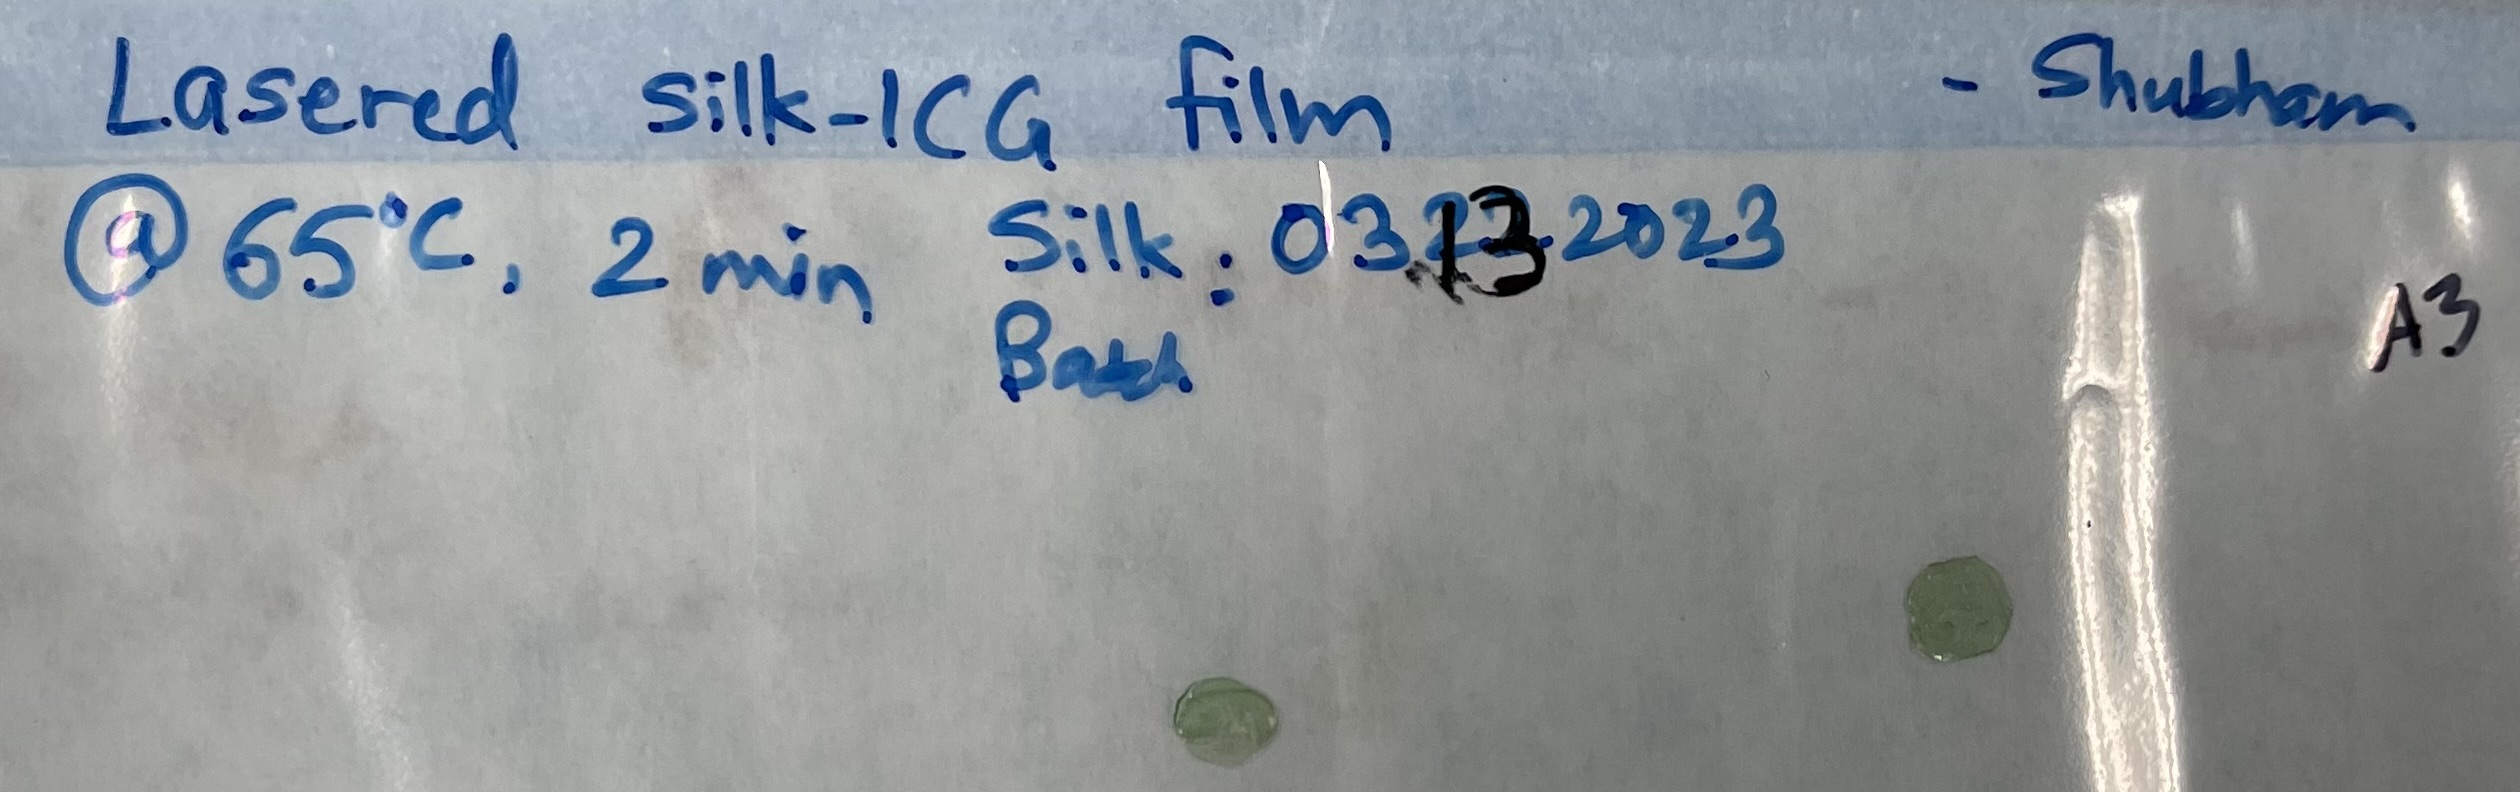 Lasered silk-ICG film - Shubham
@ 65°C, 2 min Silk : 03.13.2023
Batch
A3